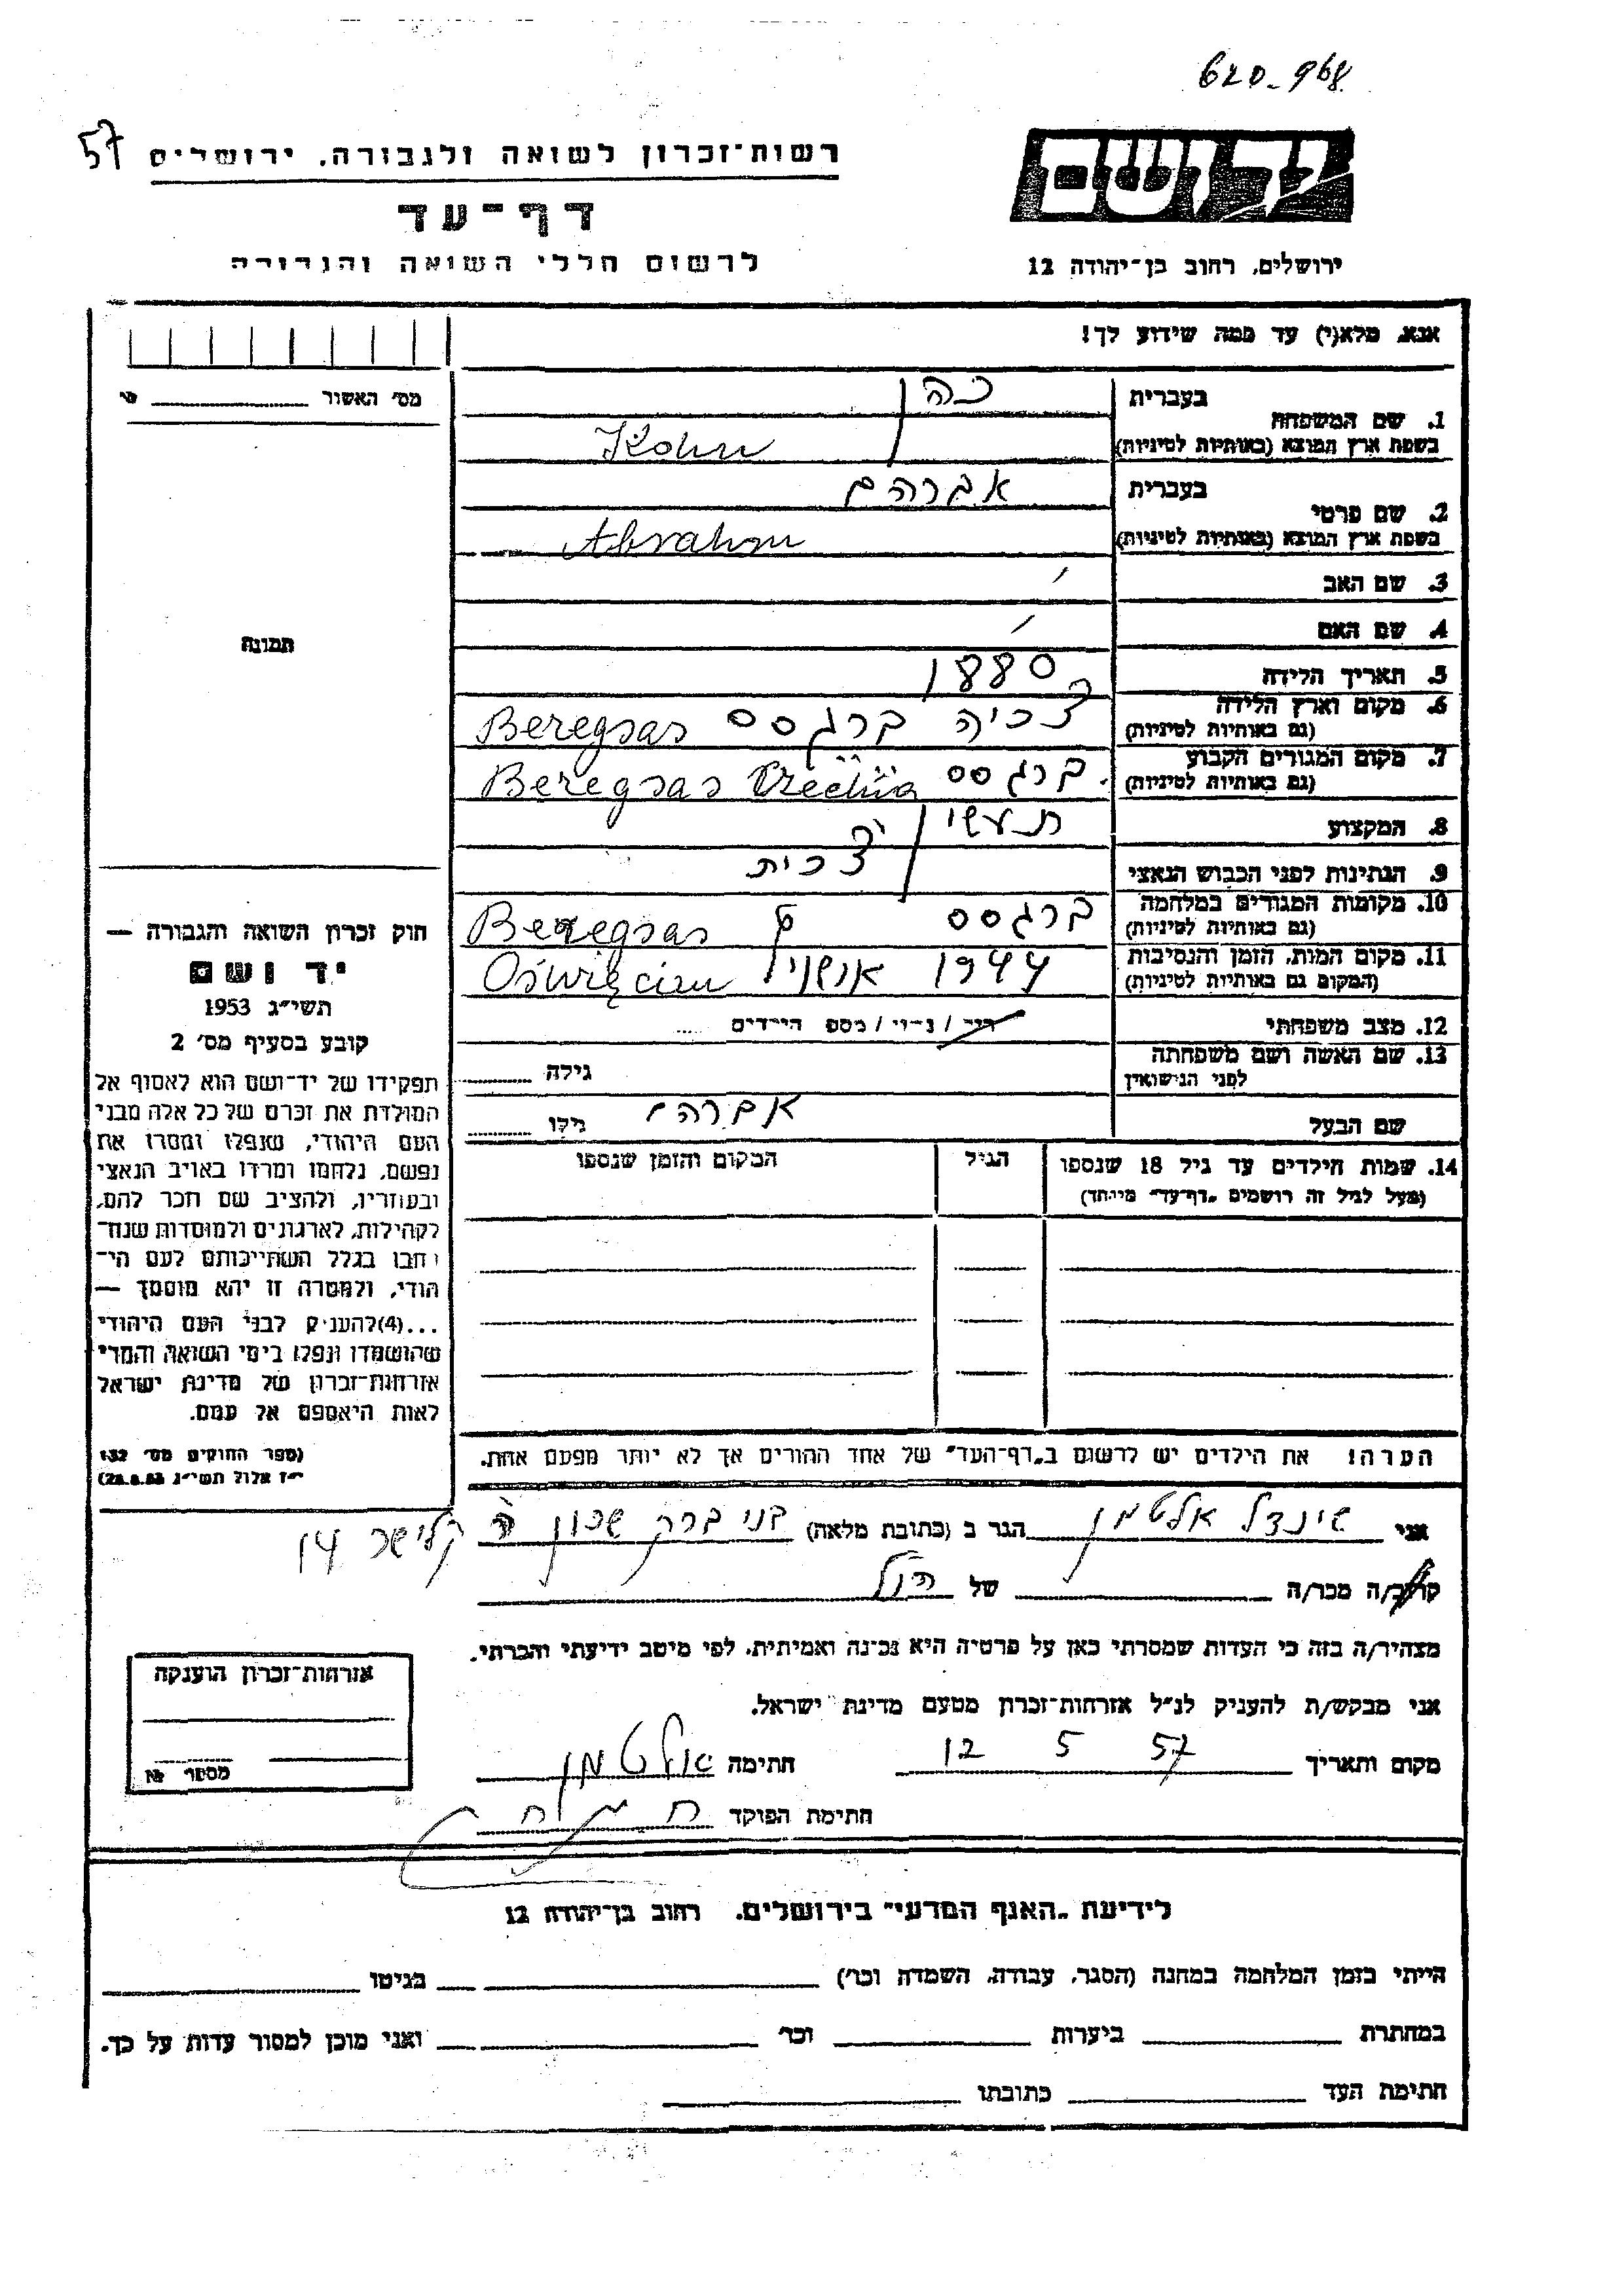 620-968
57
רשות־זכרון לשואה ולגבורה, ירושלים
דף־עד
לרשום חללי השואה והגבורה
יד ושם
ירושלים, רחוב בן־יהודה 12
אנא, מלא(י) עד כמה שידוע לך!
מס׳ האשור
1. שם המשפחה
בעברית כהן
בשפת ארץ המוצא (באותיות לטיניות) Kohn
2. שם פרטי
בעברית אברהם
בשפת ארץ המוצא (באותיות לטיניות) Abraham
3. שם האב
4. שם האם
5. תאריך הלידה 1880
6. מקום וארץ הלידה צכיה ברגסס Beregsas
(גם באותיות לטיניות)
7. מקום המגורים הקבוע ברגסס Beregsas
(גם באותיות לטיניות)
8. המקצוע
9. הנתינות לפני הכבוש הנאצי צכית
10. מקומות המגורים במלחמה ברגסס Beregsas
(גם באותיות לטיניות)
11. מקום המות, הזמן והנסיבות 1944 Oświęcim
(המקום גם באותיות לטיניות)
12. מצב משפחתי
/ נ־וי / מספ הילדים
13. שם האשה ושם משפחתה
לפני הנישואין
גילה
שם הבעל אברהם
גילו
14. שמות הילדים עד גיל 18 שנספו
(מעל לגיל זה רושמים „דף־עד״ מיוחד)
הגיל
המקום והזמן שנספו
הערה! את הילדים יש לרשום ב„דף־העד״ של אחד ההורים אך לא יותר מפעם אחת.
תמונה
חוק זכרון השואה והגבורה —
יד ושם
תשי״ג 1953
קובע בסעיף מס׳ 2
תפקידו של יד־ושם הוא לאסוף אל
המולדת את זכרם של כל אלה מבני
העם היהודי, שנפלו ומסרו את
נפשם, נלחמו ומרדו באויב הנאצי
ובעוזריו, ולהציב שם וזכר להם,
לקהילות, לארגונים ולמוסדות שנח־
רבו בגלל השתייכותם לעם הי־
הודי, ולמטרה זו יהא מוסמך —
...(4)להעניק לבני העם היהודי
שהושמדו ונפלו בימי השואה והמרי
אזרחות־זכרון של מדינת ישראל
לאות היאספם אל עמם.
(ספר החוקים מס׳ 132
י״ז אלול תשי״ג 28.8.53)
אני שינדל אלטמן הגר ב (כתובת מלאה) בני ברק שכון ה קלישר 14
קרוב/ה מכר/ה של
מצהיר/ה בזה כי העדות שמסרתי כאן על פרטיה היא נכונה ואמיתית, לפי מיטב ידיעתי והכרתי.
אני מבקש/ת להעניק לנ״ל אזרחות־זכרון מטעם מדינת ישראל.
מקום ותאריך 12 5 57 חתימה אלטמן
חתימת הפוקד
אזרחות־זכרון הוענקה
מספר №
לידיעת „האגף המדעי״ בירושלים, רחוב בן־יהודה 12
הייתי בזמן המלחמה במחנה (הסגר, עבודה, השמדה וכר׳) בגיטו
במחתרת ביערות וכר׳ ואני מוכן למסור עדות על כך.
חתימת העד כתובתו